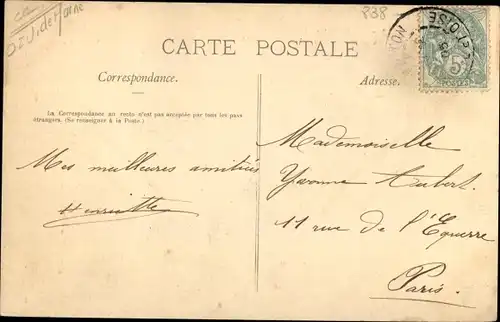 838
CARTE POSTALE
Correspondance.
Adresse.
La Correspondance au recto n'est pas acceptée par tous les pays
étrangers. (Se renseigner à la Poste.)
Mademoiselle
Mes meilleures amitiés
Yvonne Aubert.
Henriette
11 rue de l'Equerre
Paris.
5
POSTES